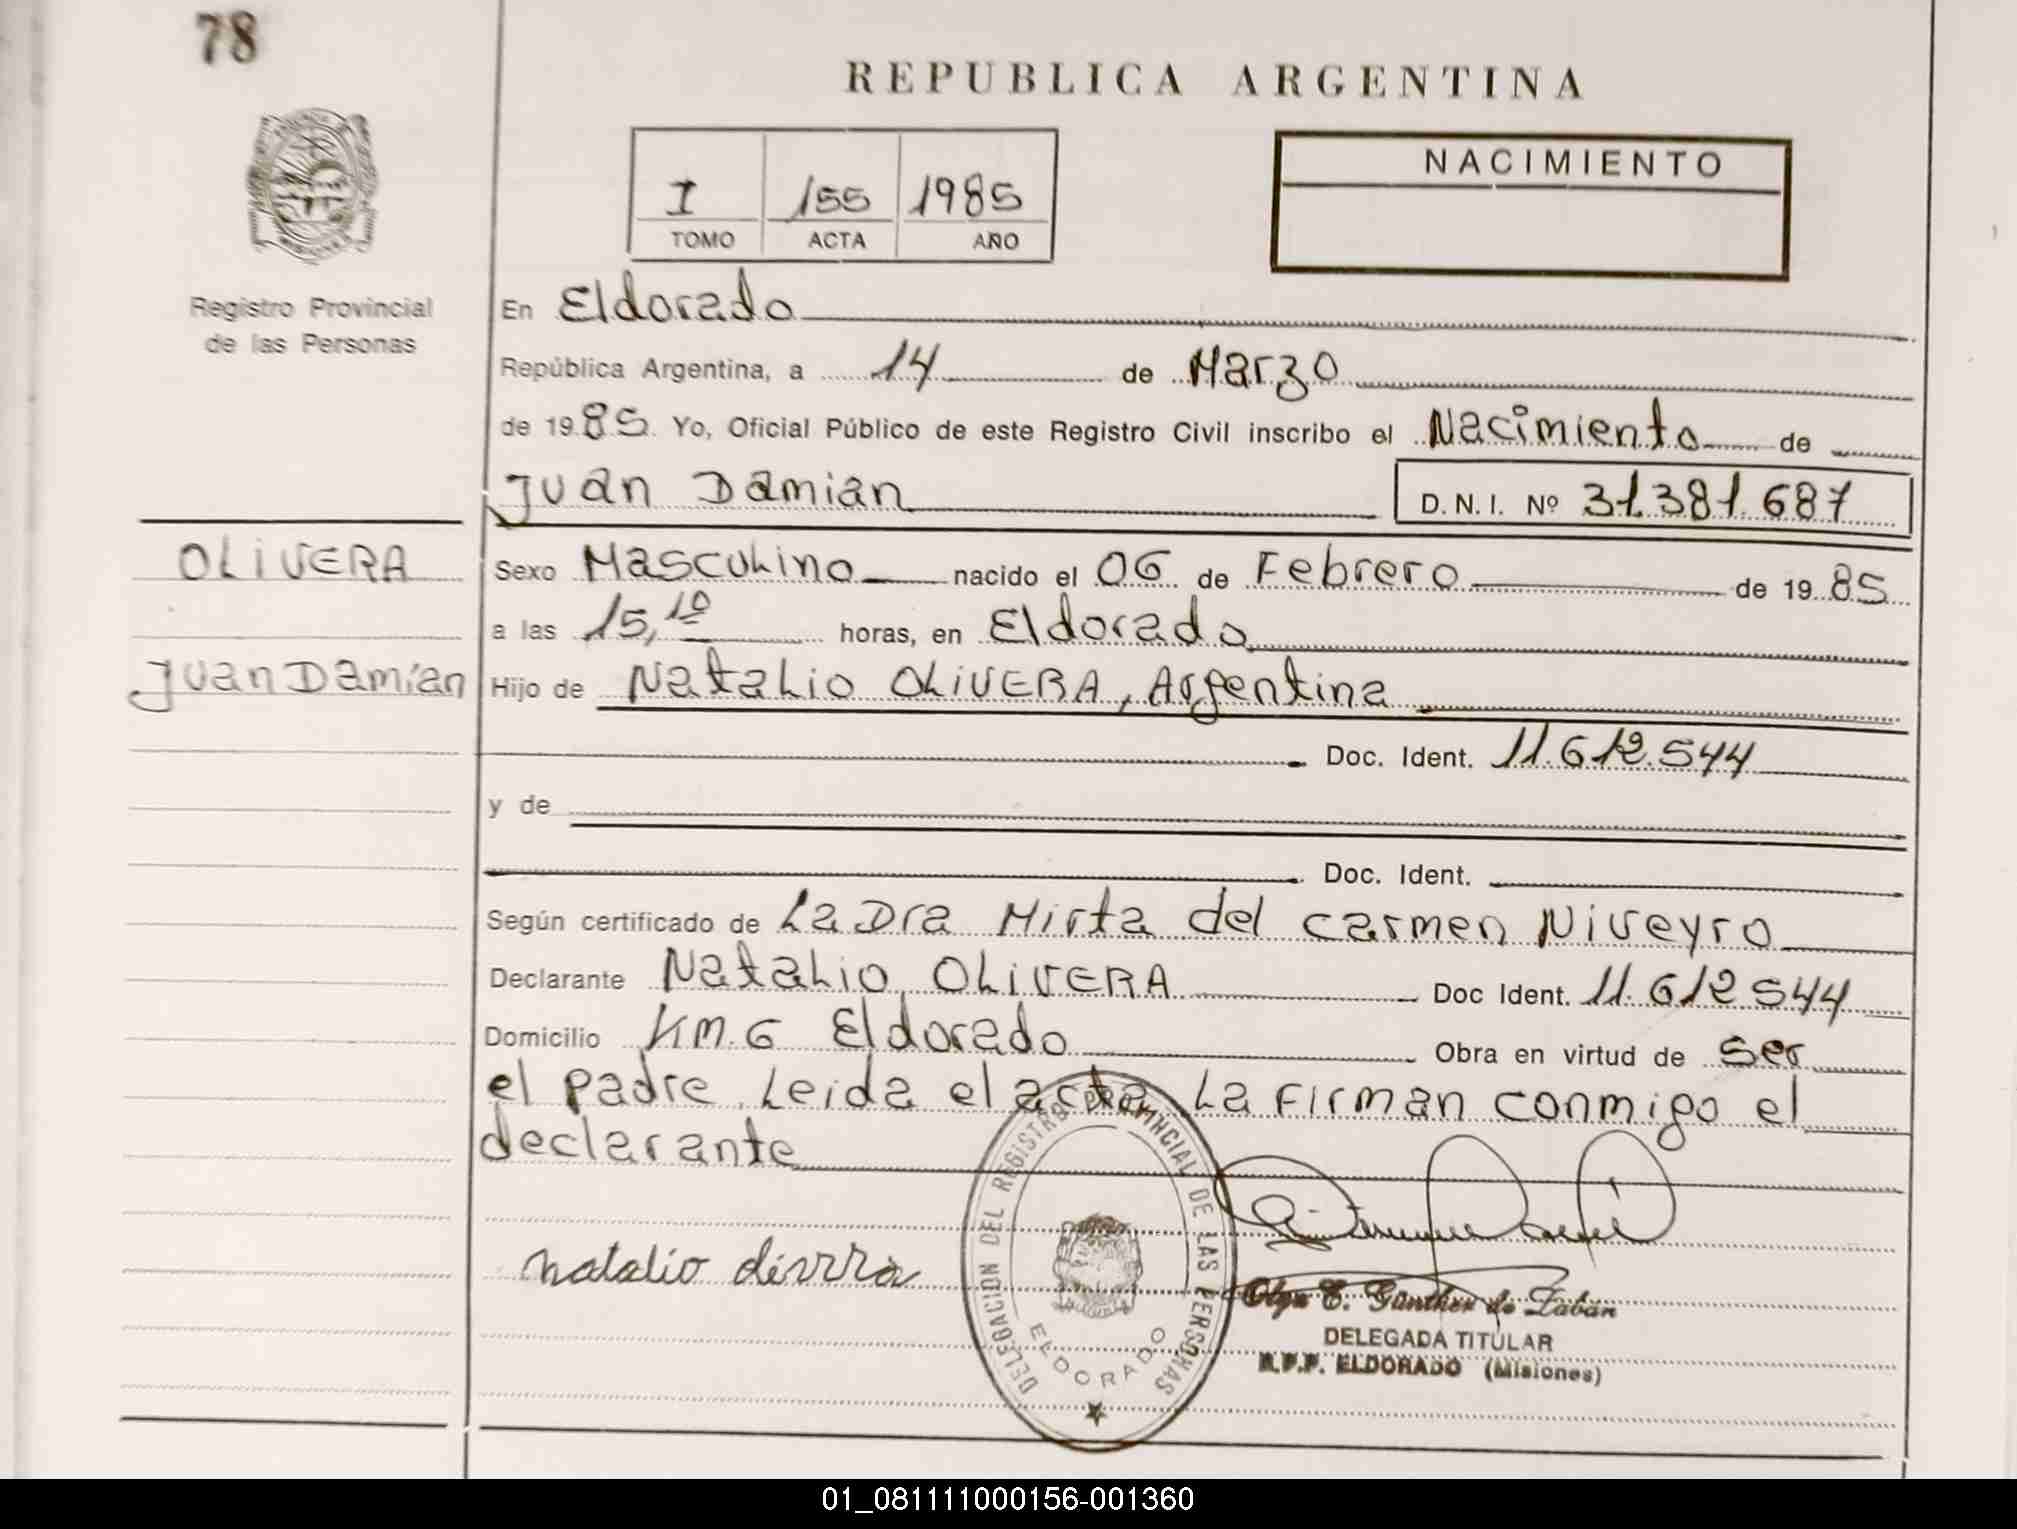 78
REPUBLICA ARGENTINA
NACIMIENTO
I 155 1985
TOMO ACTA AÑO
Registro Provincial
de las Personas
En Eldorado
República Argentina, a 14 de Marzo
de 1985 Yo, Oficial Público de este Registro Civil inscribo el Nacimiento de
Juan Damian D.N.I. Nº 31.381.687
OLIVERA
Juan Damian
Sexo Masculino nacido el 06 de Febrero de 1985
a las 15,10 horas, en Eldorado
Hijo de Natalio OLIVERA, Argentina
Doc. Ident. 11.612.544
y de
Doc. Ident.
Según certificado de La Dra Mirta del Carmen Niveyro
Declarante Natalio OLIVERA Doc Ident. 11.612544
Domicilio Km.6 Eldorado Obra en virtud de ser
el padre. Leida el acta La Firman conmigo el
declarante
DELEGACION DEL REGISTRO PROVINCIAL DE LAS PERSONAS
ELDORADO
natalio
Olga E. Günther de Zabán
DELEGADA TITULAR
R.P.P. ELDORADO (Misiones)
01_081111000156-001360